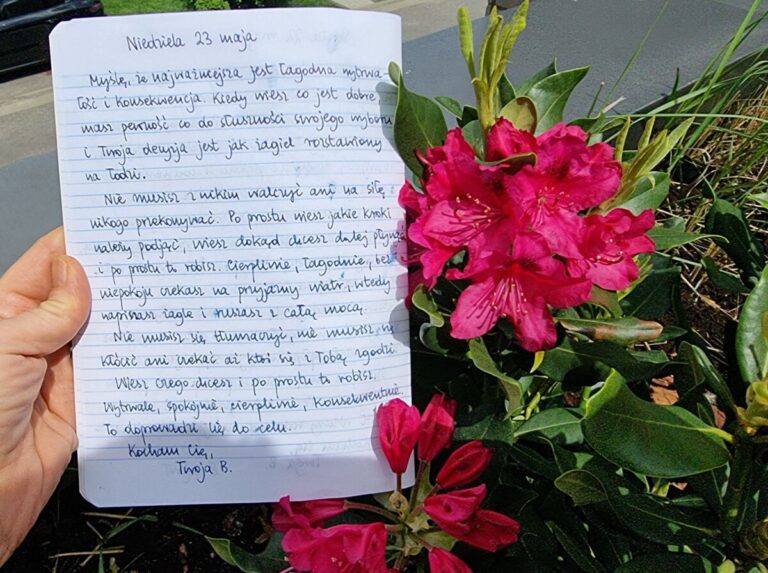 Niedziela 23 maja
Myślę, że najważniejsza jest łagodna wytrwa
łość i konsekwencja. Kiedy wiesz co jest dobre
masz pewność co do słuszności swojego wyboru
i Twoja decyzja jest jak żagiel rozstawiony
na łodzi.
Nie musisz z nikim walczyć ani na siłę
nikogo przekonywać. Po prostu wiesz jakie kroki
należy podjąć, wiesz dokąd chcesz dalej płynąć
i po prostu to robisz. Cierpliwie, łagodnie, bez
niepokoju czekasz na przyjazny wiatr, wtedy
napinasz żagle i ruszasz z całą mocą.
Nie musisz się tłumaczyć, nie musisz się
kłócić ani czekać aż ktoś się z Tobą zgodzi.
Wiesz czego chcesz i po prostu to robisz.
Wytrwale, spokojnie, cierpliwie, konsekwentnie.
To doprowadzi Cię do celu.
Kocham Cię,
Twoja B.